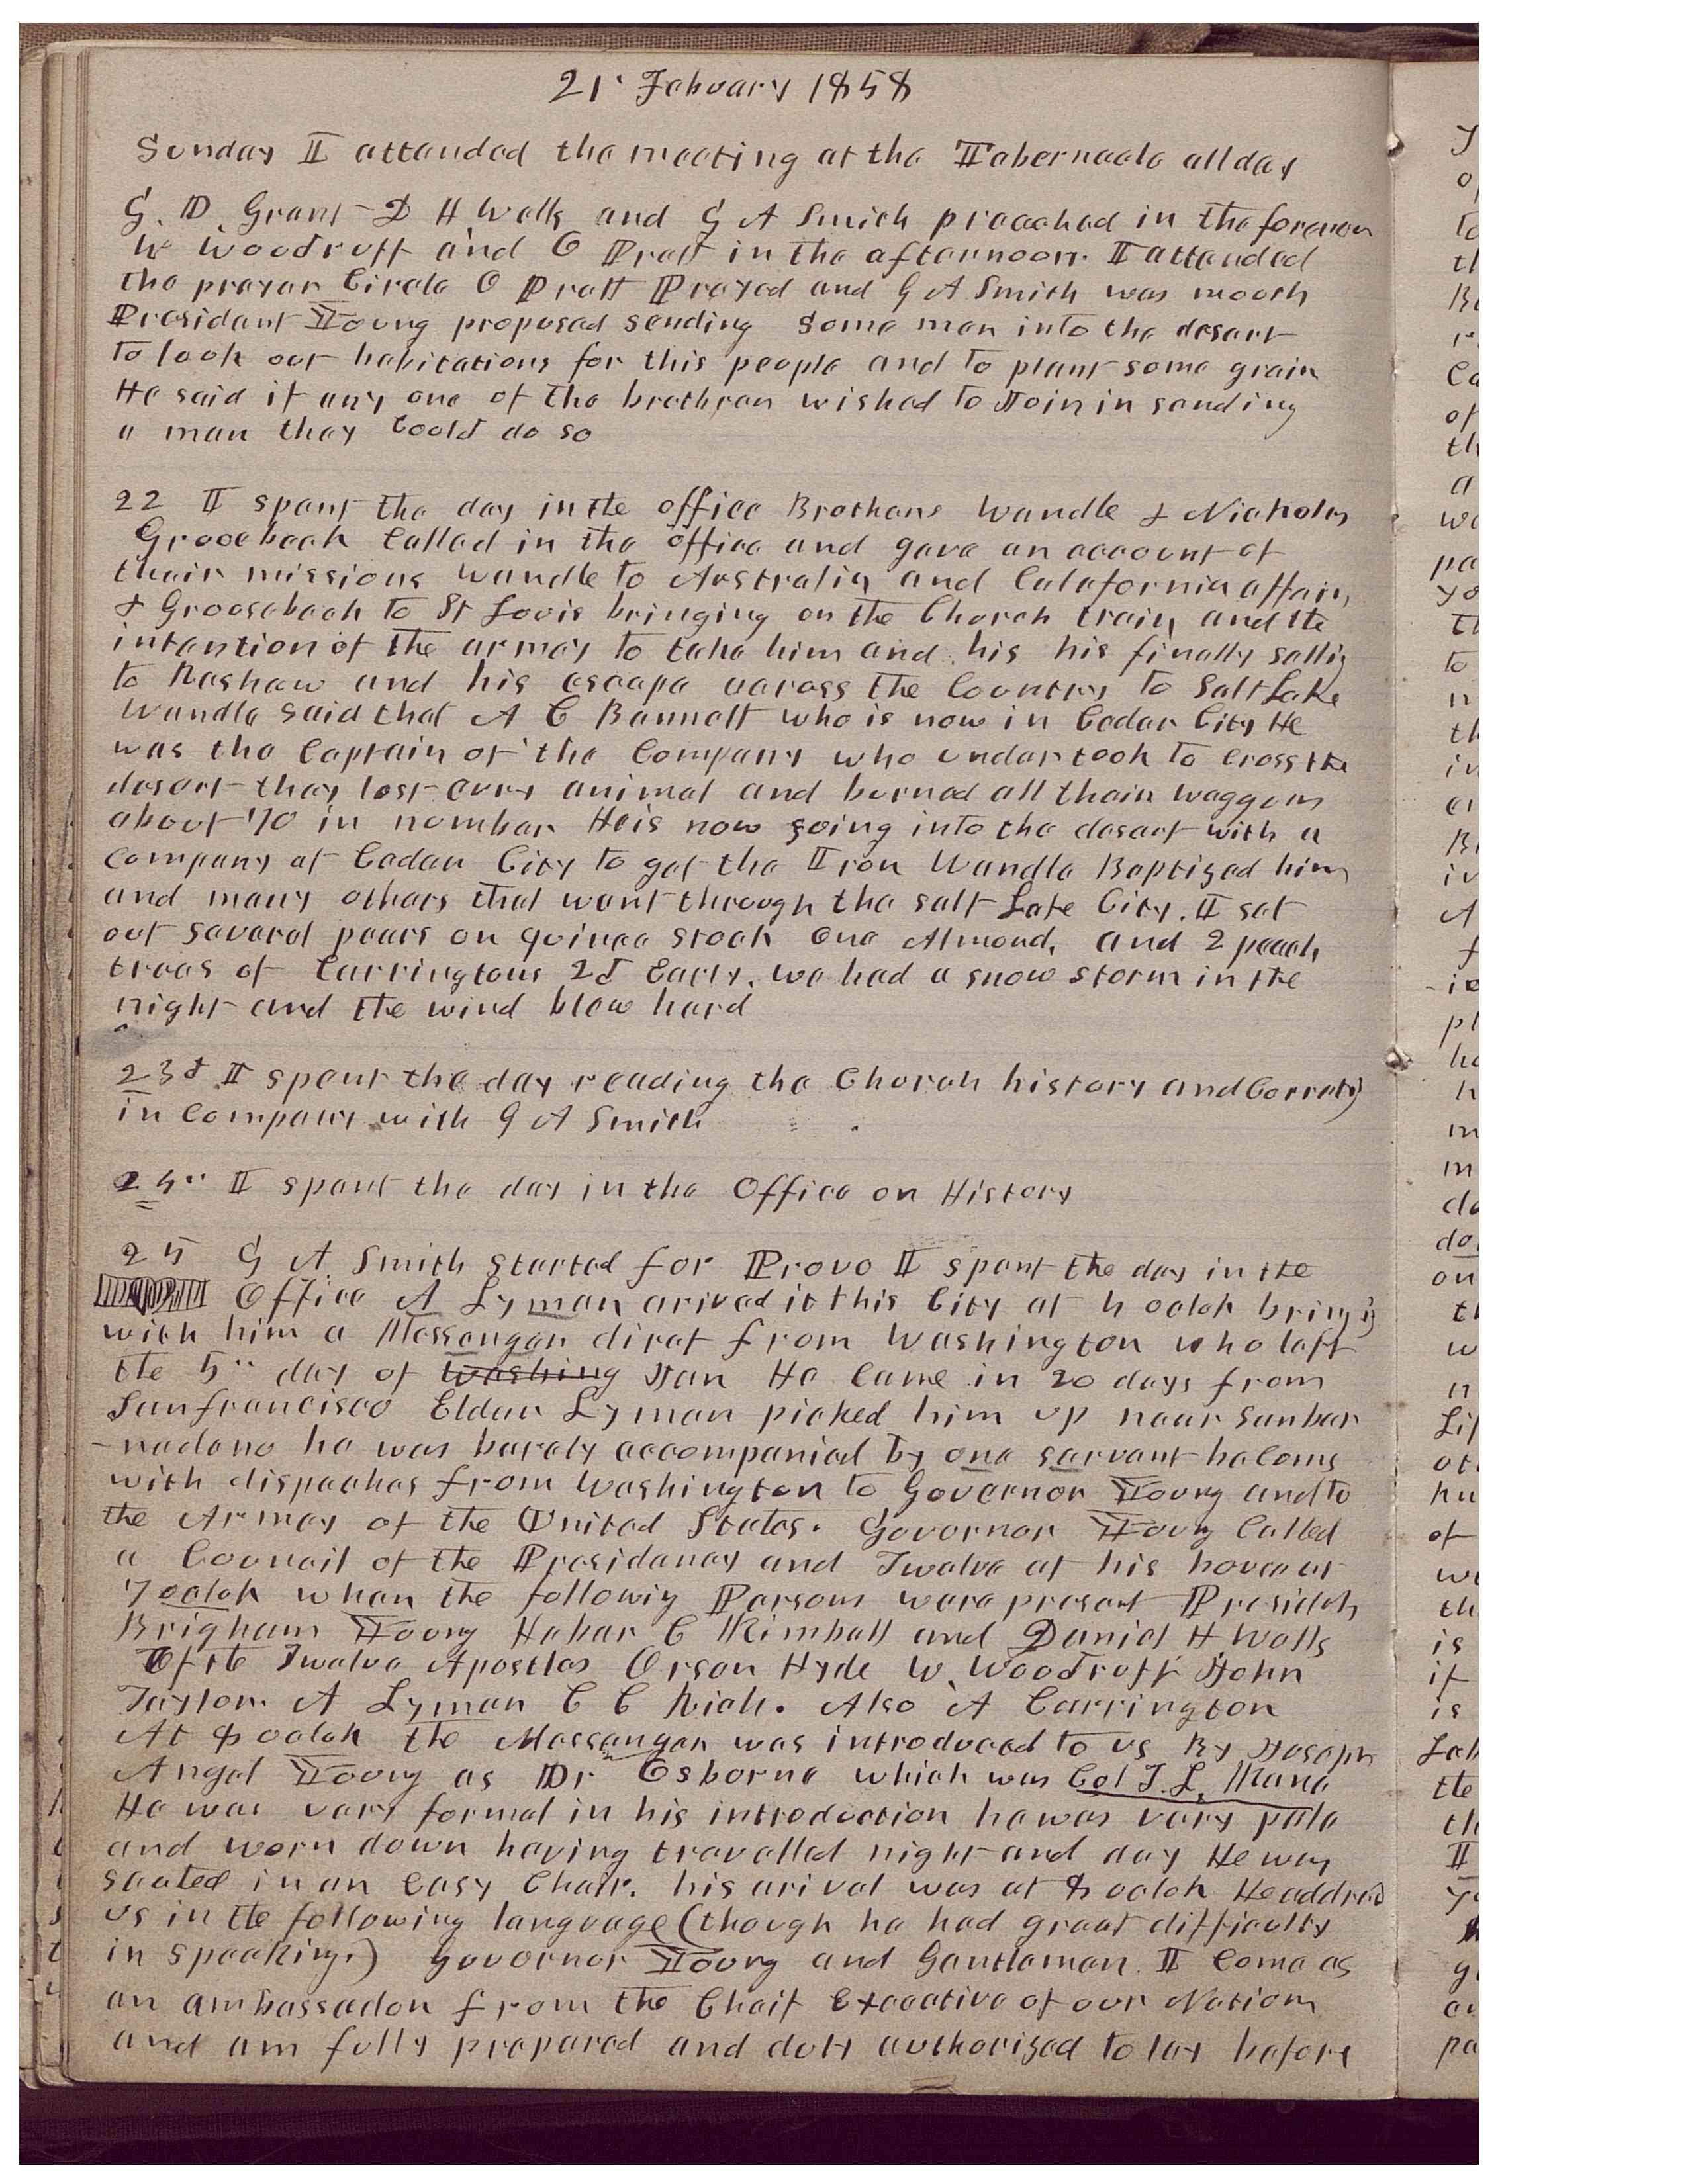 21 Febuary 1858
Sunday I attended the meeting at the Tabernacle all day
G. D. Grant D H Wells and G A Smith preached in the forenoon
W Woodruff and O Pratt in the afternoon. I attended
the prayer Circle O Pratt Prayed and G A Smith was mouth
President Young proposed sending some men into the desert
to look out habitations for this people and to plant some grain
He said if any one of the brethren wished to Join in sending
a man they Could do so
22 I spent the day in the office Brothers Wandle & Nicholas
Groosebeck Called in the office and gave an account of
their missions Wandle to Australia and Calafornia affairs
& Groosebeck to St Louis bringing on the Church train and the
intention of the army to take him and his his finally selling
to Rashaw and his escape across the Country to Salt Lake
Wandle said that A C Bennett who is now in Cedar City He
was the Captain of the Company who undertook to cross the
desert they lost evry animal and burned all their waggons
about 70 in number He is now going into the desert with a
Company at Cedar City to get the Iron Wandle Baptized him
and many others that went through the salt Lake City. I set
out several pears on quince stock One Almond, and 2 peach
trees of Carringtons 2d Early. we had a snow storm in the
night and the wind blew hard
23d I spent the day reading the Church history and Correctig
in Company with G A Smith
24" I spent the day in the Office on History
25 G A Smith Started for Provo I spent the day in the
Office A Lyman arived it this City at 4 oclok bringig
with him a Messenger dirct from Washington who left
the 5" day of Washing Jan He Came in 20 days from
Sanfrancisco Elder Lyman picked him up near Sanbar
-nadeno he was barely accompanied by one servant he Coms
with dispaches from Washington to Governor Young and to
the Armey of the United States. Governor Young Called
a Council of the Presidency and Twelve at his house at
7 oclok when the followig Persons were present Presidets
Brigham Young Heber C Kimball and Daniel H Wells
Of the Twelve Apostles Orson Hyde W. Woodruff John
Taylor. A Lyman C C Rich. Also A Carrington
At 8 oclok the Messenger was introduced to us By Joseph
Angel Young as Dr Osborne which was Col T. L. Kane
He was very formal in his introduction he was very pale
and worn down having travelled night and day He was
seated in an Easy Chair. his arival was at 8 oclok He addresd
us in the following language (though he had great difficulty
in speaking.) Governor Young and Gentlemen. I Come as
an ambassador from the Cheif Executive of our Nation
and am fully prepared and duly authorized to lay before